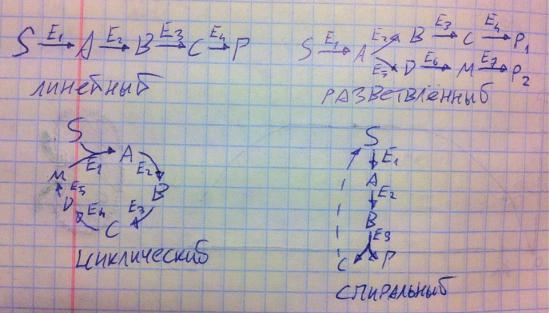 S E₁ A E₂ B E₃ C E₄ P
ЛИНЕЙНЫЙ
S E₁ A E₂ B E₃ C E₄ P₁
E₅ D E₆ M E₇ P₂
РАЗВЕТВЛЁННЫЙ
S E₁ A E₂ B E₃ C E₄ D E₅ M
ЦИКЛИЧЕСКИЙ
S
E₁
A
E₂
B
E₃
C P
СПИРАЛЬНЫЙ